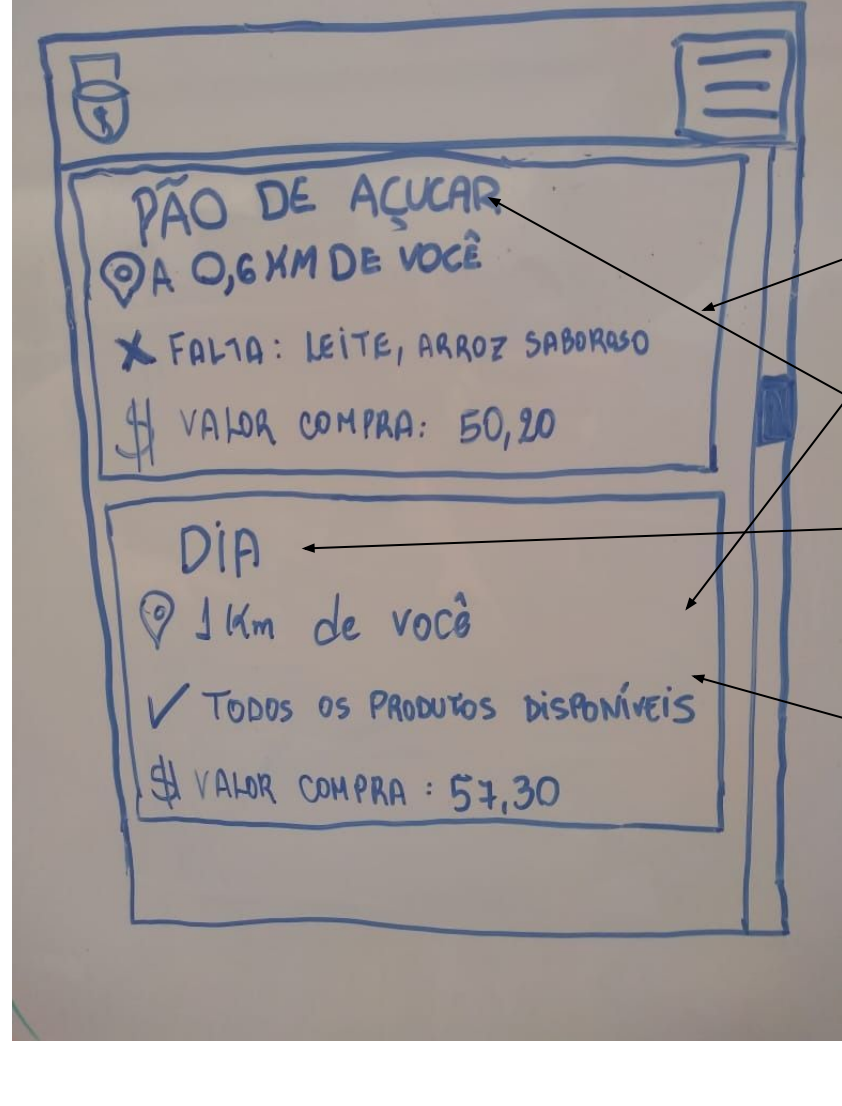 $
PÃO DE AÇUCAR
A 0,6 KM DE VOCÊ
X FALTA: LEITE, ARROZ SABOROSO
$ VALOR COMPRA: 50,20
DIA
1 Km de você
✓ TODOS OS PRODUTOS DISPONÍVEIS
$ VALOR COMPRA : 57,30